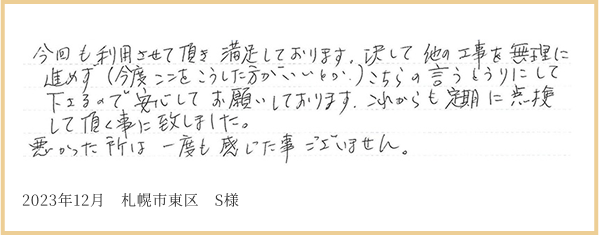 今回も利用させて頂き満足しております。決して他の工事を無理に
進めず(今度ここをこうした方がいいとか、)こちらの言うとうりにして
下さるので安心してお願いしております。これからも定期に点検
して頂く事に致しました。
悪かった所は一度も感じた事ございません。
2023年12月 札幌市東区 S様